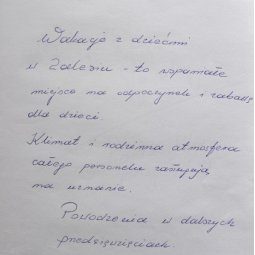 Wakacje z dziećmi
w Zalesiu - to wspaniałe
miejsce na odpoczynek i zabawę
dla dzieci.
Klimat i rodzinna atmosfera
całego personelu zasługują
na uznanie.
Powodzenia w dalszych
przedsięwzięciach.